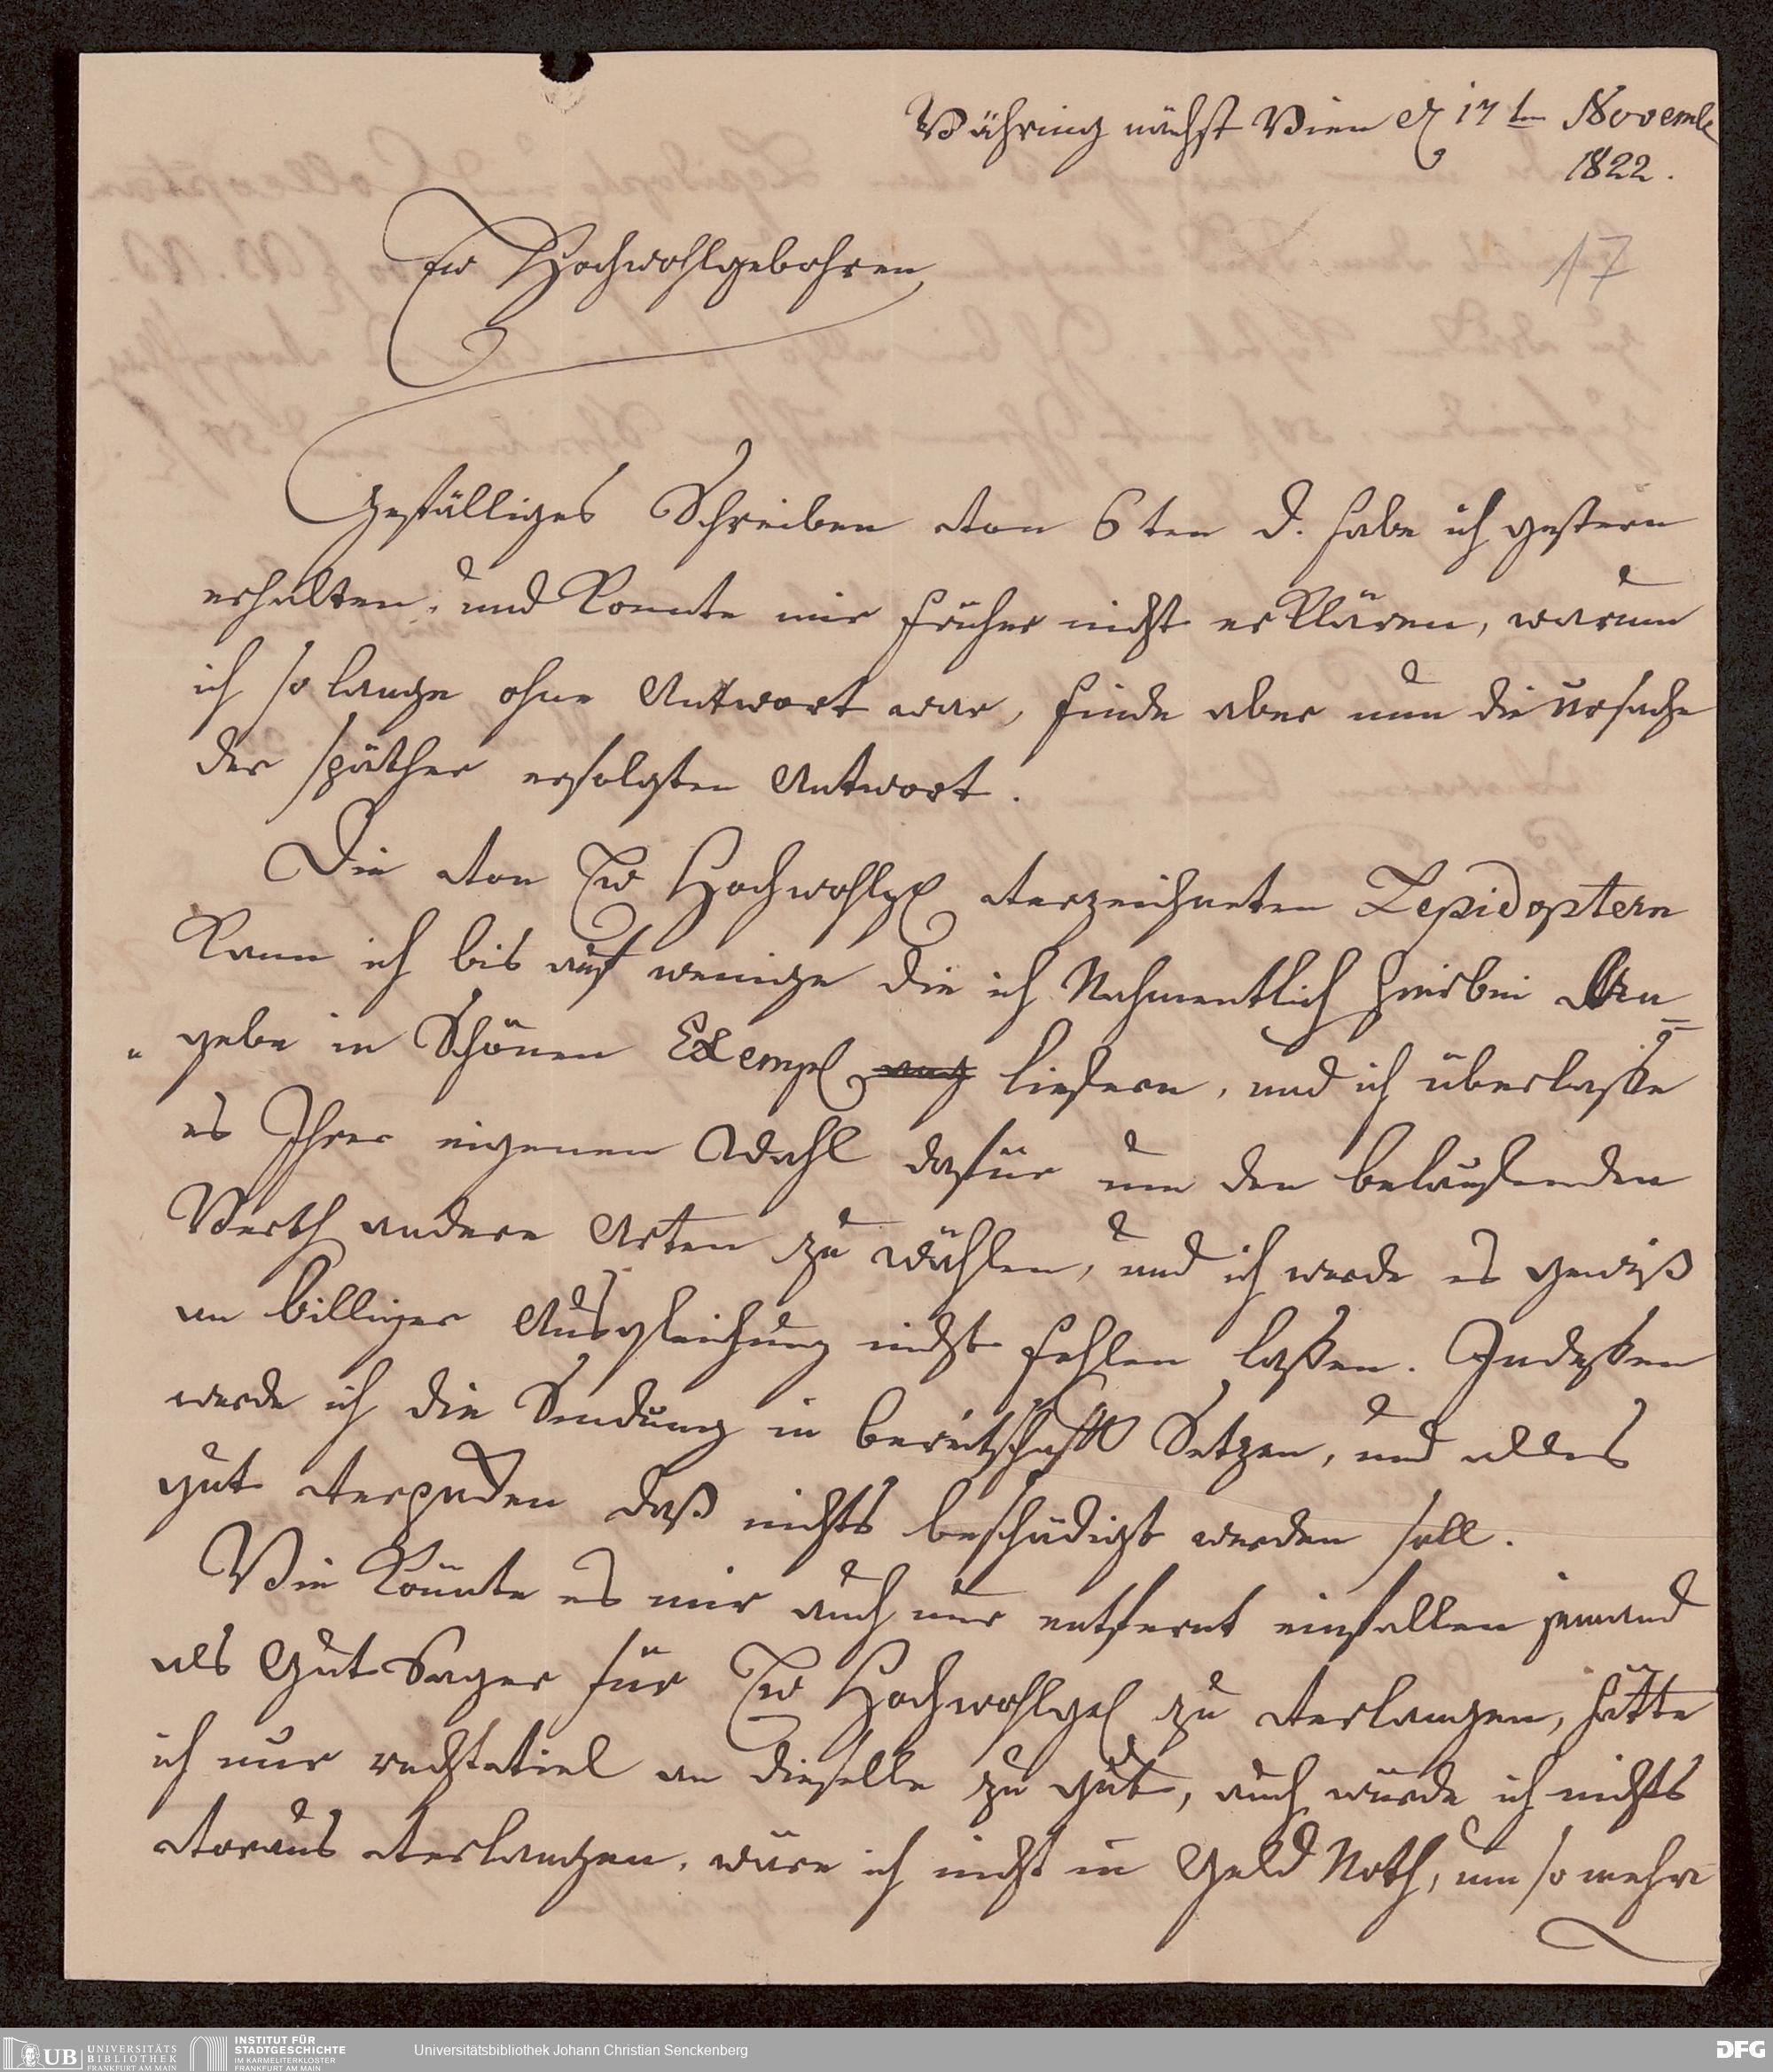 Währing nächst Wien d 17ten Novembe
1822.
17
Ew Hochwohlgebohren,
Gefälliges Schreiben von 6ten d. habe ich gestern
erhalten, und konnte mir früher nicht erklären, warum
ich so lange ohne Antwort war, finde aber nun die Ursache
der späther erfolgten Antwort.
Die von Ew Hochwohlg verzeichneten Lepidoptern
kann ich bis auf wenige die ich Nahmentlich hierbei An=
"gebe in Schönen Exempl liefern, und ich überlaße
es Ihrer eigenen Wahl dafür um den belaufenden
Werth andere Arten zu wählen, und ich werde es gewiß
an billiger Ausgleichung nicht fehlen laßen. Indeßen
werde ich die Sendung in bereitschaft Setzen, und alles
gut verpaken daß nichts beschädigt werden soll.
Wie könnte es mir auch nur entfernt einfallen jemand
als Gut Sager für Ew Hochwohlgeb zu verlangen, hätte
ich nur recht viel an dieselbe zu gut, auch würde ich nichts
voraus verlangen, wäre ich nicht in Geld Noth, um so mehr
UB UNIVERSITÄTS
BIBLIOTHEK
FRANKFURT AM MAIN
INSTITUT FÜR
STADTGESCHICHTE
IM KARMELITERKLOSTER
FRANKFURT AM MAIN
Universitätsbibliothek Johann Christian Senckenberg
DFG